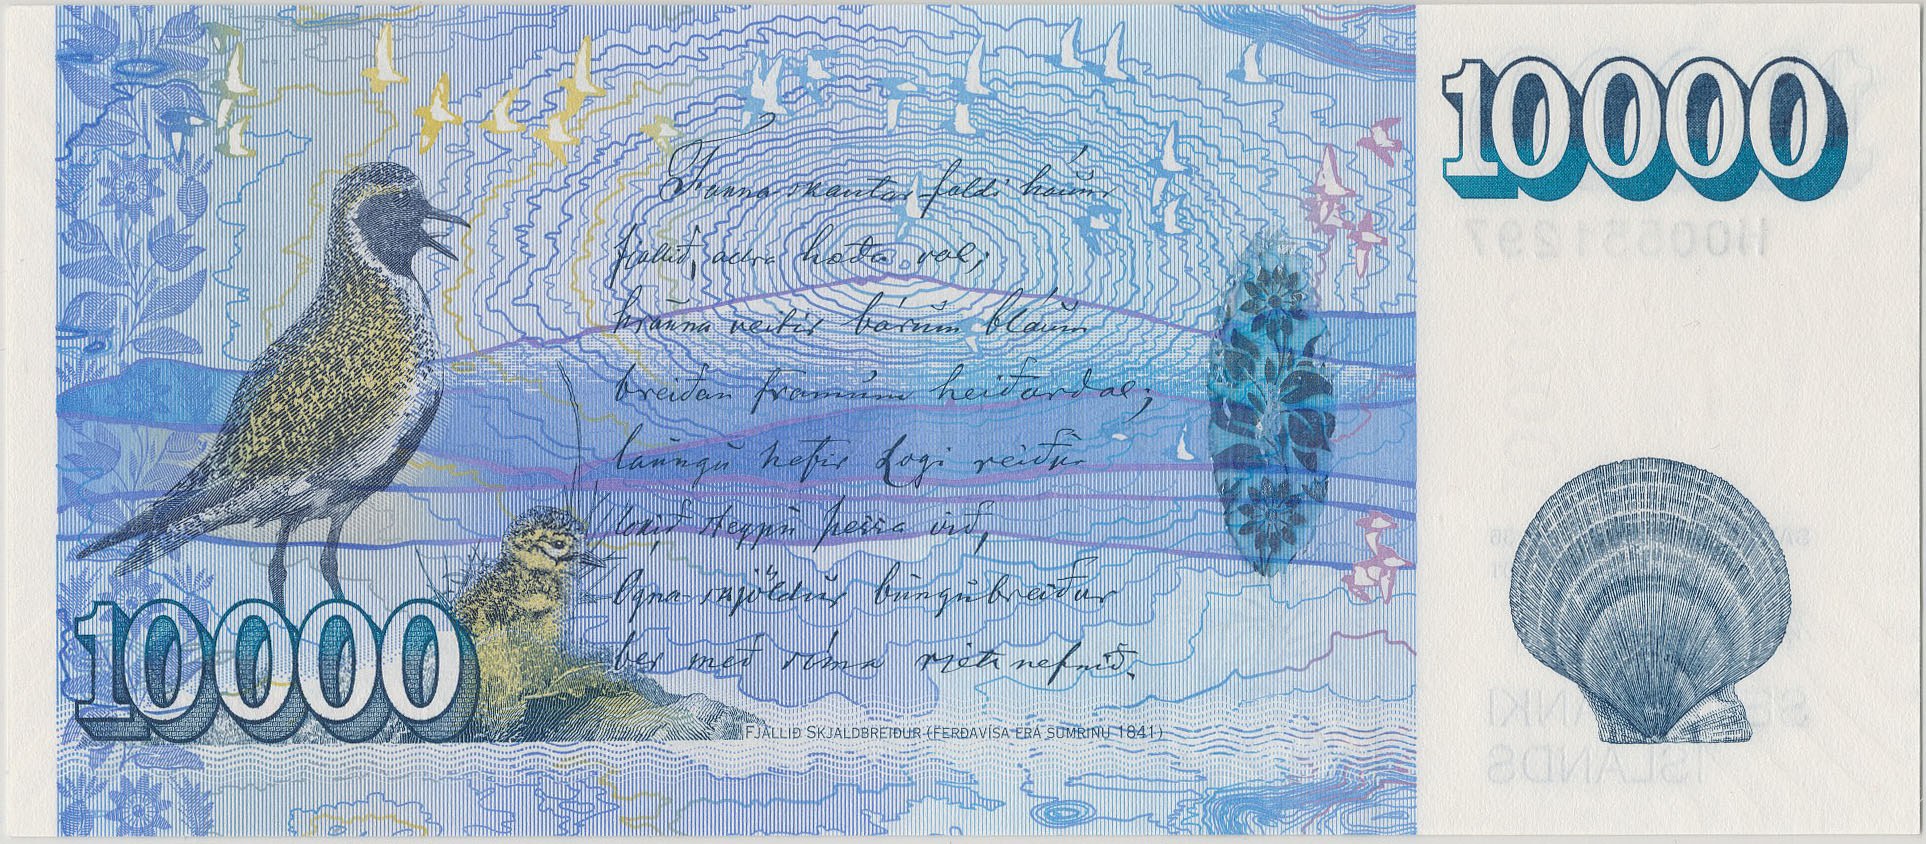 10000
Fanna skautar faldi háum
fjallið, allra hæða val;
hrauna veitir bárum bláum
breiðan framum heiðardal;
laungu hefir Logi reiður
lokið steypu þessa við,
Ógna-skjöldur bungubreiður
ber með sóma rjett nefnið.
10000
FJALLIÐ SKJALDBREIÐUR (FERÐAVÍSA FRÁ SUMRINU 1841)